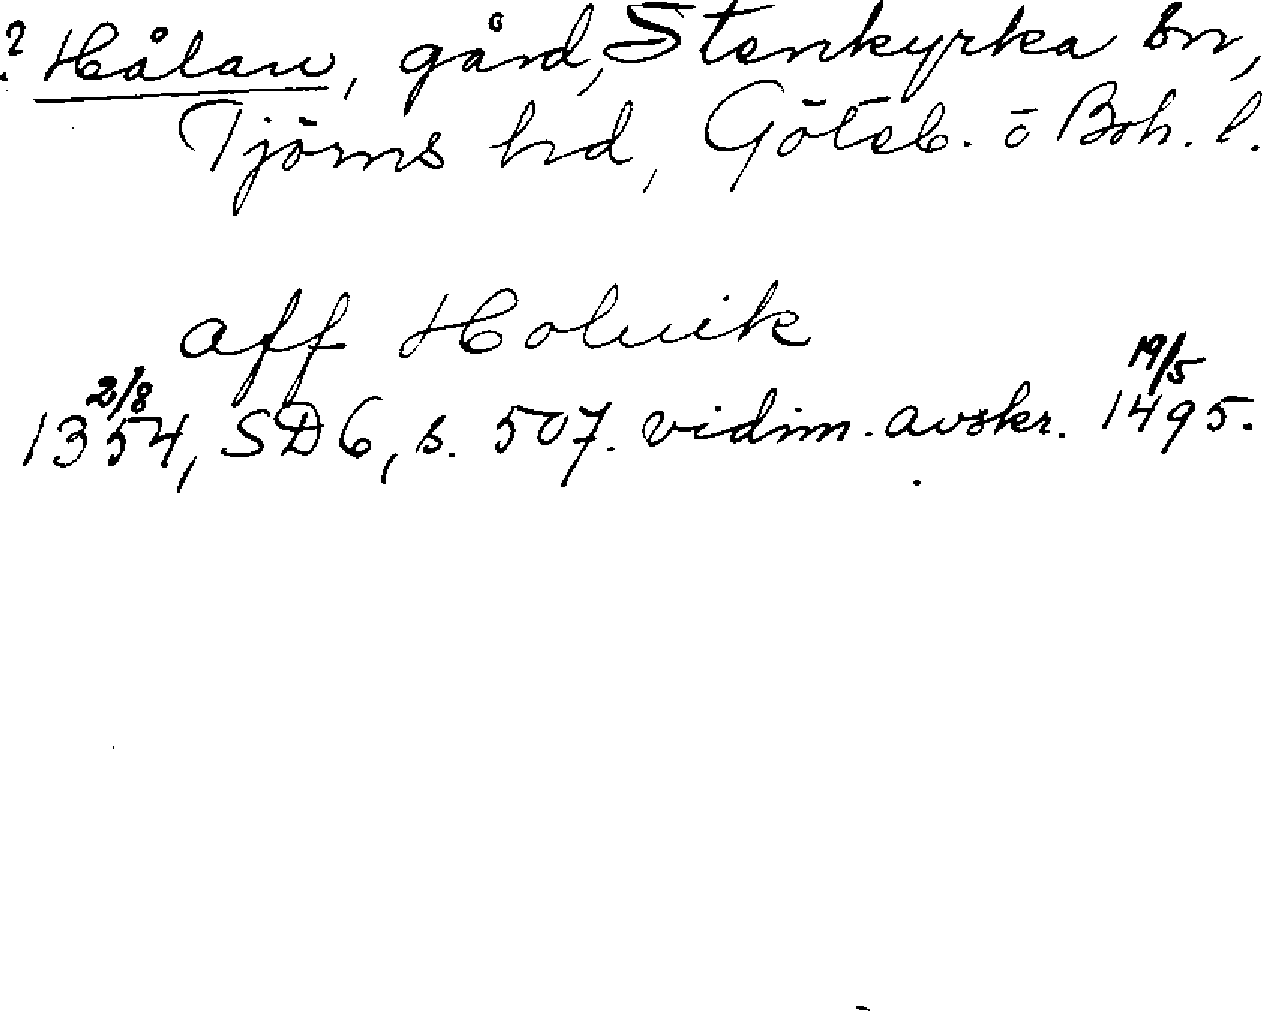 ? Hålan, gård, Stenkyrka sn,
Tjörns hd, Göteb. o Boh. l.
aff Holuik
2/8 19/5
1354, SD6, s. 507. vidim. avskr. 1495.